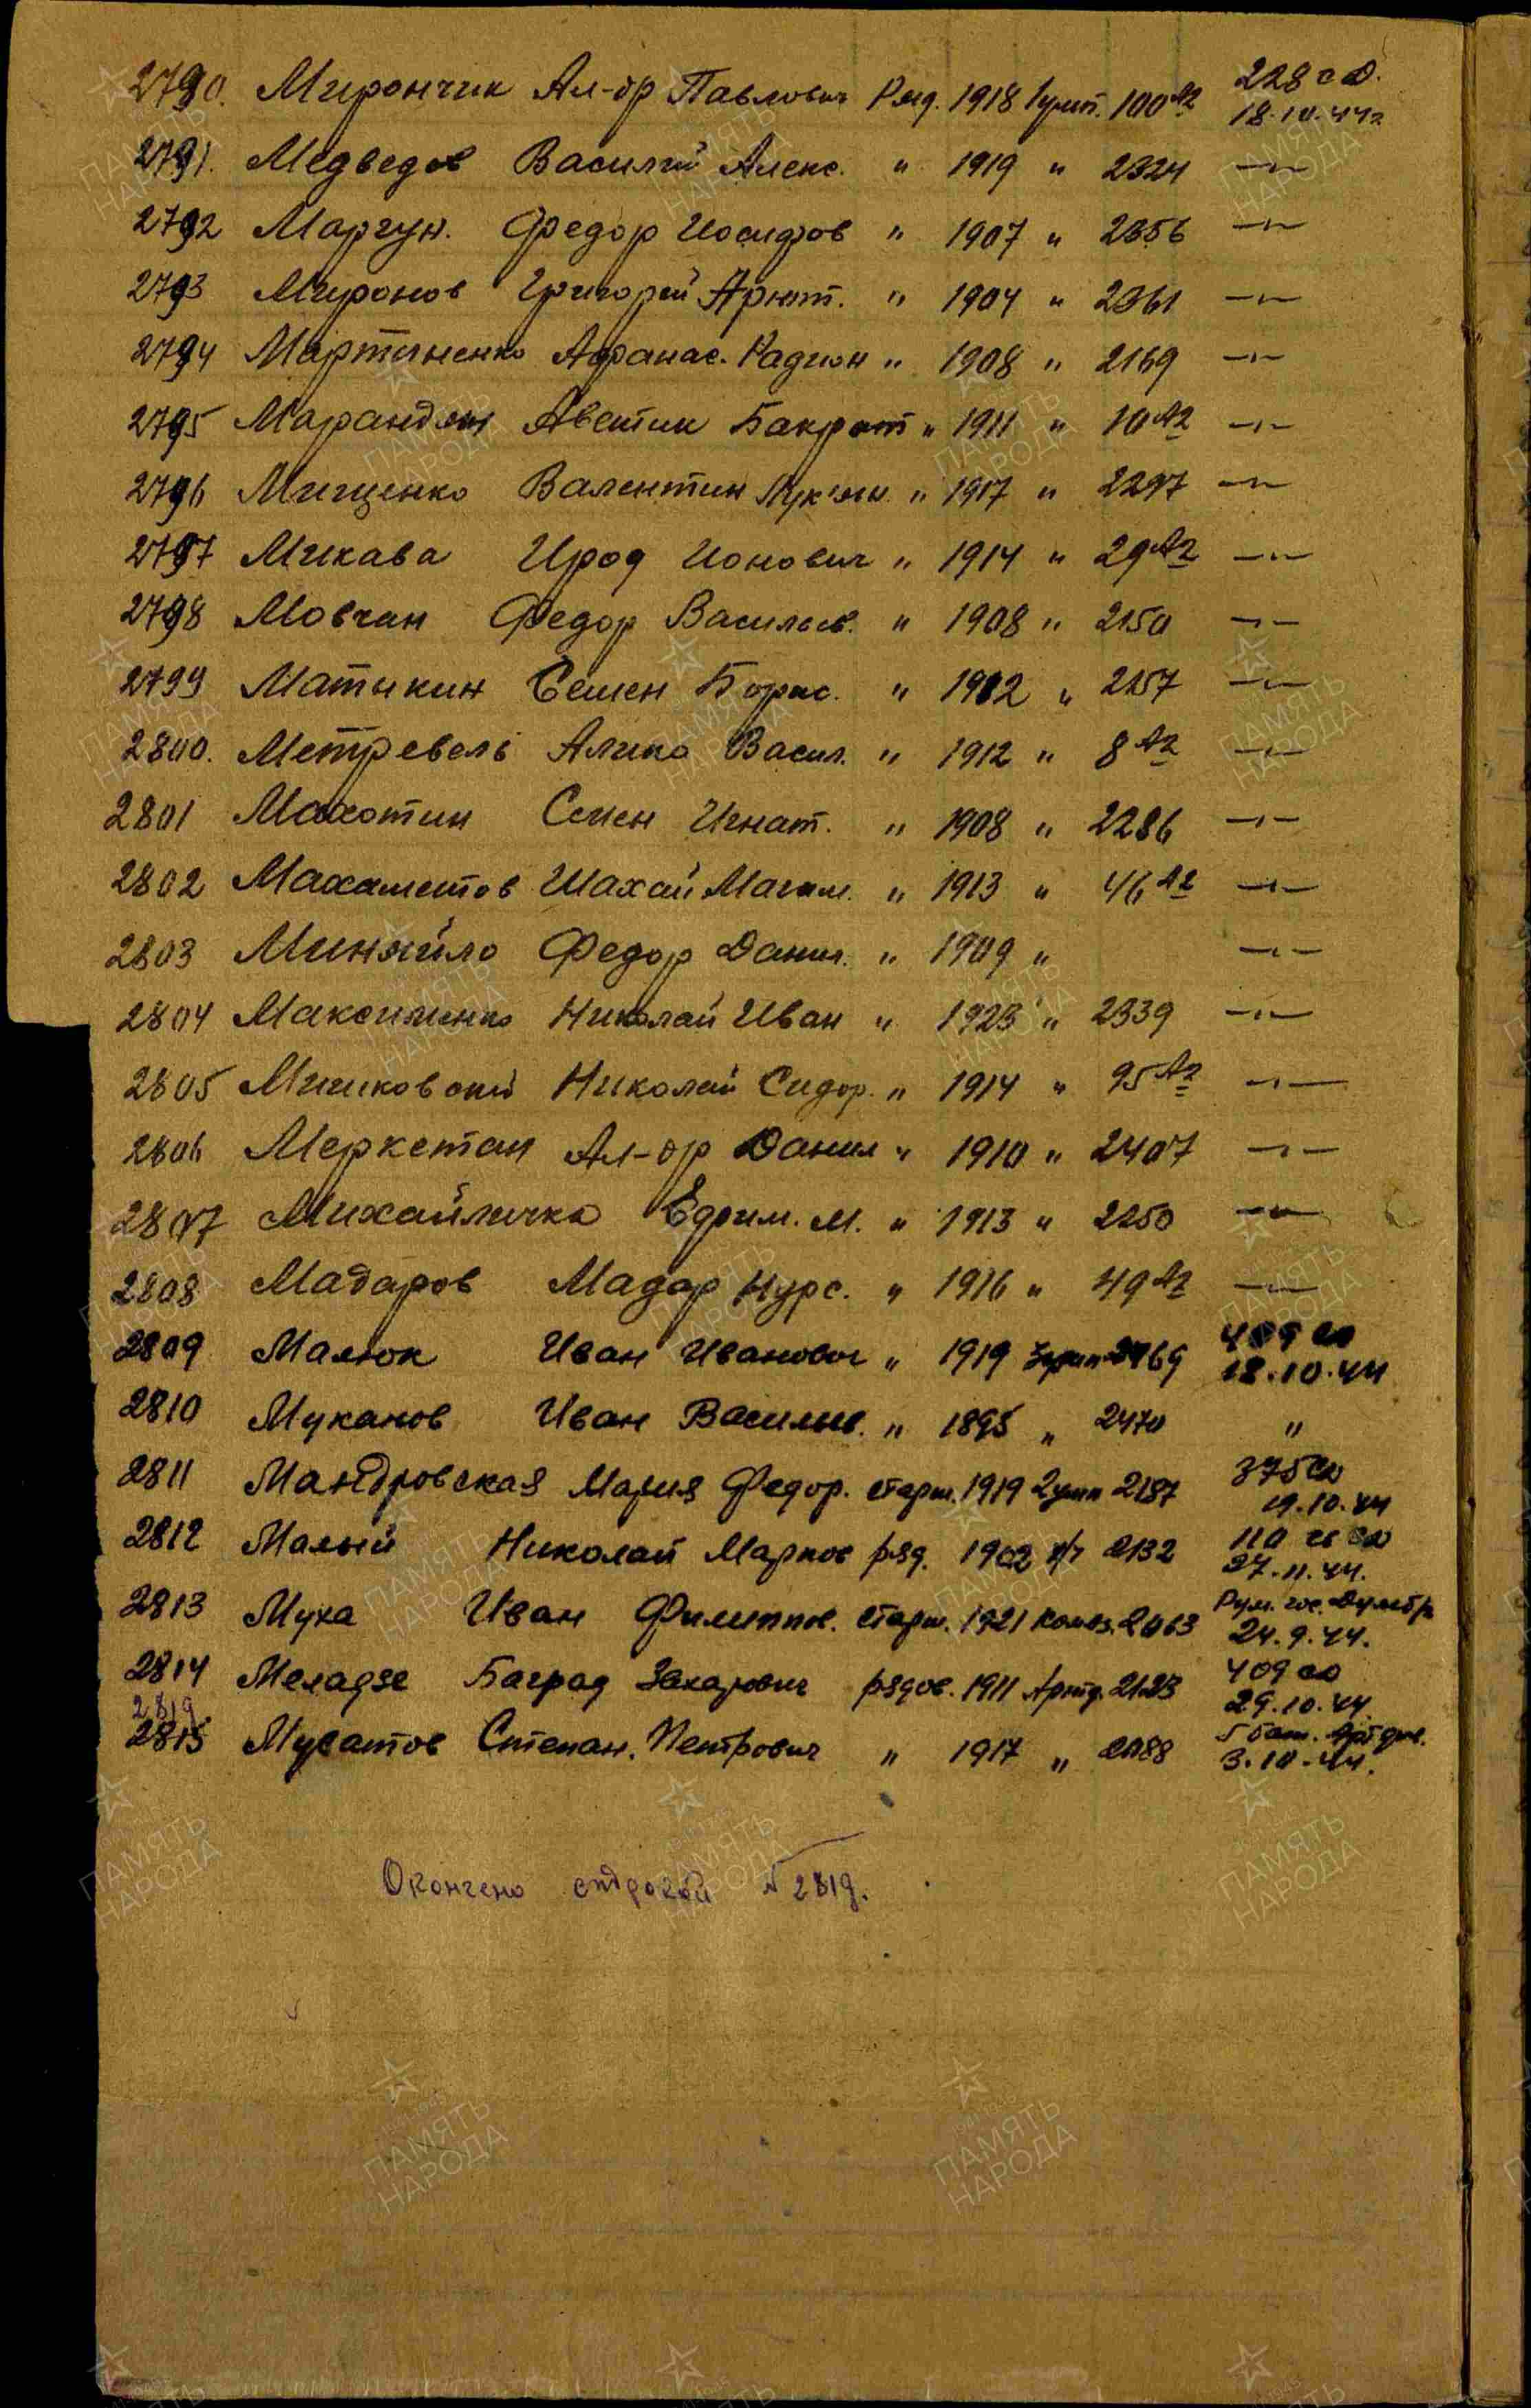 2790. Мирончик Ал-др Павлович Ряд. 1918 1уми. 100 А2 228 сд. 18.10.44г
2791. Медведев Василий Алекс. " 1919 " 2324 —"—
2792 Маргун. Федор Иосифов " 1907 " 2356 —"—
2793 Миронов Григорий " 1904 " 2361 —"—
2794 Мартиненко Афанас. Радион " 1908 " 2169 —"—
2795 Аветик Бакрат " 1911 " 10 А2 —"—
2796 Мищенко Валентин Лук'ян. " 1917 " 2297 —"—
2797 Микава Ирод Ионович " 1914 " 29 А2 —"—
2798 Мовчан Федор Васильев. " 1908 " 2150 —"—
2799 Матыкин Семен Борис. " 1902 " 2257 —"—
2800. Метревель Алико Васил. " 1912 " 8 А2 —"—
2801 Махотин Семен Игнат. " 1908 " 2286 —"—
2802 Махаметов Шахай Магом. " 1913 " 46 А2 —"—
2803 Минжйло Федор Данил. " 1909 " —"—
2804 Максименко Николай Иван " 1923 " 2339 —"—
2805 Мишковский Николай Сидор. " 1914 " 95 А2 —"—
2806 Меркетан Ал-др Данил " 1910 " 2407 —"—
2807 Михайличка Ефрим. М. " 1913 " 2250 —"—
2808 Мадаров Мадар Нурс. " 1916 " 49 А2 —"—
2809 Малюк Иван Иванович " 1919 2469 409 сд 18.10.44
2810 Муканов Иван Васильев. " 1895 " 2470 "
2811 Мандровская Мария Федор. старш. 1919 2187 375 сд 19.10.44
2812 Малый Николай Марков ряд. 1902 2132 110 сд 27.11.44.
2813 Муха Иван Филиппов. старш. 1921 2063 Рум. 24.9.44.
2814 Меладзе Баград Захарович рядов. 1911 2123 409 сд 29.10.44.
2819
2815 Мусатов Степан. Петрович " 1917 " 2088 5 бат. 3.10.44.
Окончено строкой № 2819.
ПАМЯТЬ НАРОДА